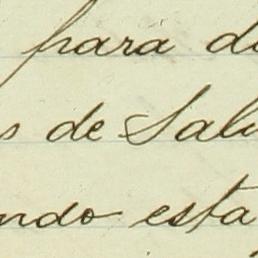 para di
s de Salu
ndo esta